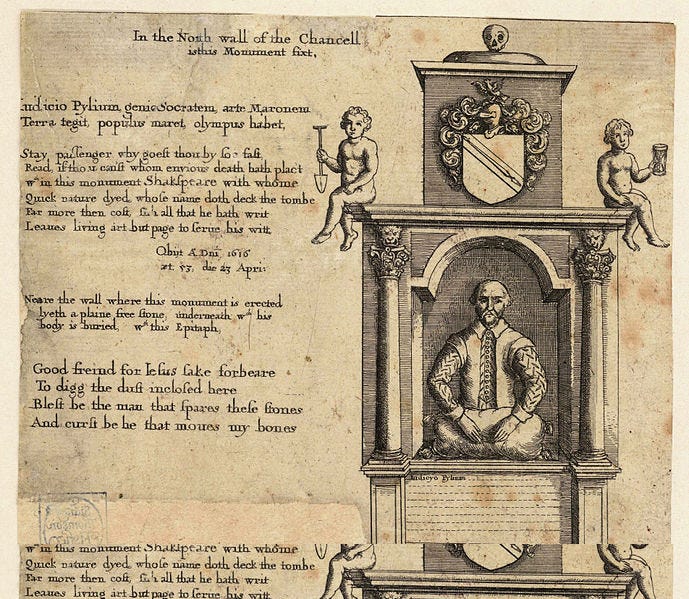 In the North wall of the Chancell
is this Monument fixt.
Iudicio Pylium genio Socratem, arte Maronem
Terra tegit, populus mæret, olympus habet.
Stay passenger why goest thou by soe fast
Read if thou canst whom envious death hath plact
wth in this monument Shakspeare with whome
Quick nature dyed, whose name doth deck the tombe
Far more then cost, sith all that he hath writ
Leaues living art but page to serue his witt
Obijt A Dni 1616
æt. 53. die 23 Apri:
Neare the wall where this monument is erected
lyeth a plaine free stone, underneath wch his
body is buried, wth this Epitaph,
Good freind for Iesus sake forbeare
To digg the dust inclosed here
Blest be the man that spares these stones
And curst be he that moues my bones
Iudicyo Pylium
wth in this monument Shakspeare with whome
Quick nature dyed, whose name doth deck the tombe
Far more then cost, sith all that he hath writ
Leaues living art but page to serue his witt